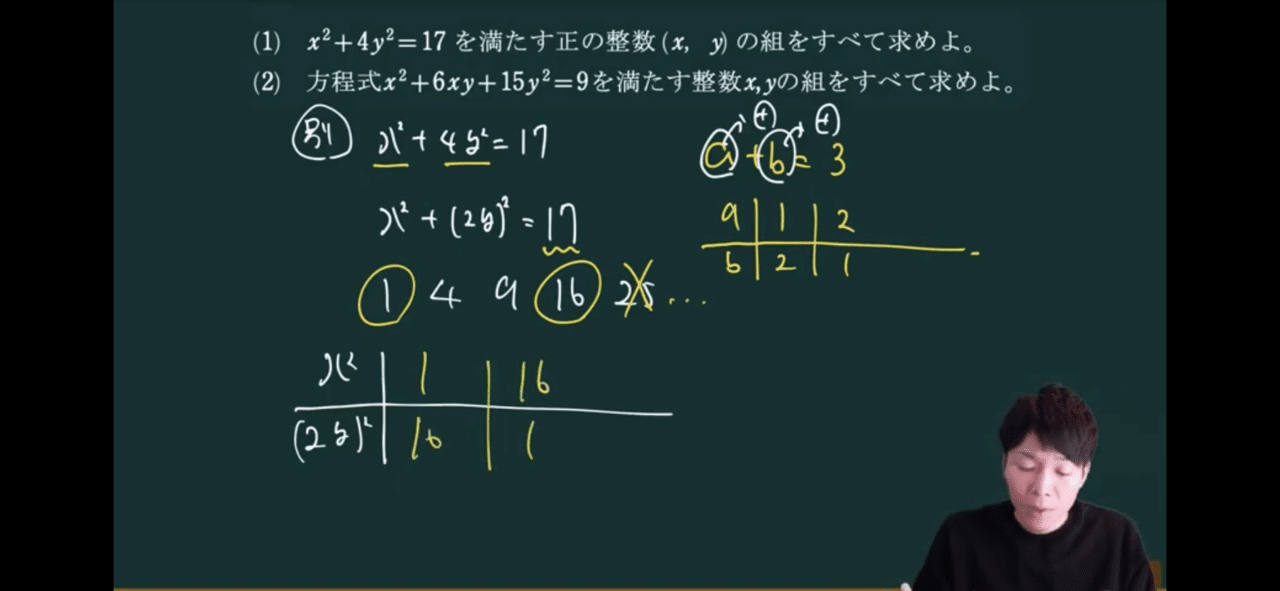 (1) x²+4y²=17 を満たす正の整数(x, y)の組をすべて求めよ。
(2) 方程式x²+6xy+15y²=9を満たす整数x,yの組をすべて求めよ。
別 x²+4y²=17
x²+(2y)²=17
1 4 9 16 25 …
x² | 1 | 16
(2y)² | 16 | 1
⊕ ⊕
a+b=3
a | 1 | 2
b | 2 | 1